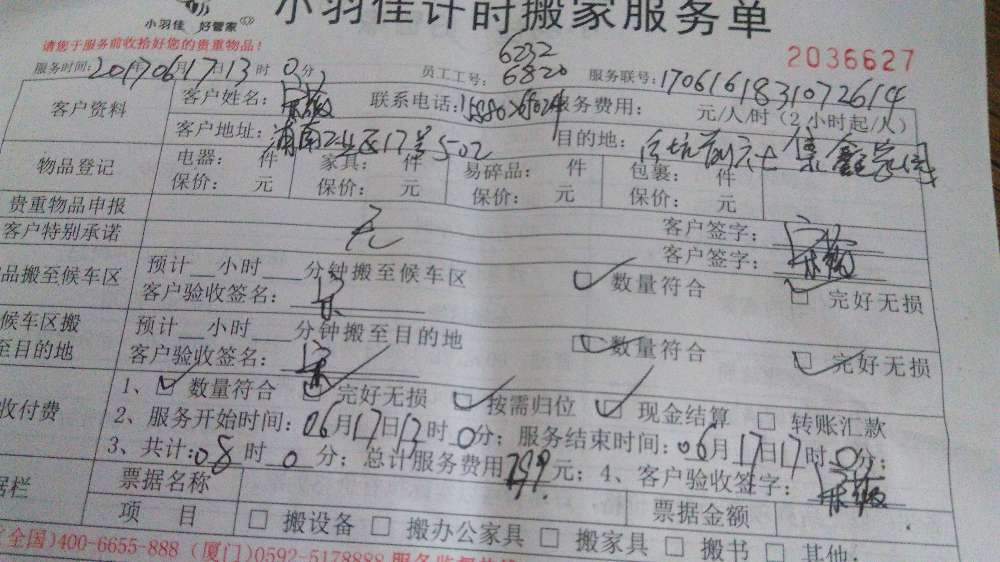 小羽佳 好管家
小羽佳计时搬家服务单
请您于服务前收拾好您的贵重物品!
2036627
6232
服务时间:2017年06月17日13时0分 员工工号: 6820 服务联号:1706161831072614
客户资料 客户姓名: 联系电话: 服务费用: 元/人/时(2小时起/人)
客户地址: 17号502 目的地:
物品登记 电器: 件 家具: 件 易碎品: 件 包裹: 件
保价: 元 保价: 元 保价: 元 保价: 元
贵重物品申报 客户签字:
客户特别承诺 无 客户签字:
品搬至候车区 预计__小时___分钟搬至候车区 数量符合 完好无损
客户验收签名:
候车区搬至目的地 预计__小时___分钟搬至目的地 数量符合 完好无损
客户验收签名:
收付费 1、数量符合 完好无损 按需归位 现金结算 转账汇款
2、服务开始时间:06月17日13时0分;服务结束时间:06月17日17时0分;
3、共计:08时0分;总计服务费用799元;4、客户验收签字:
据栏 票据名称 票据金额
项目 搬设备 搬办公家具 搬家具 搬书 其他:
(全国)400-6655-888 (厦门)0592-5178888